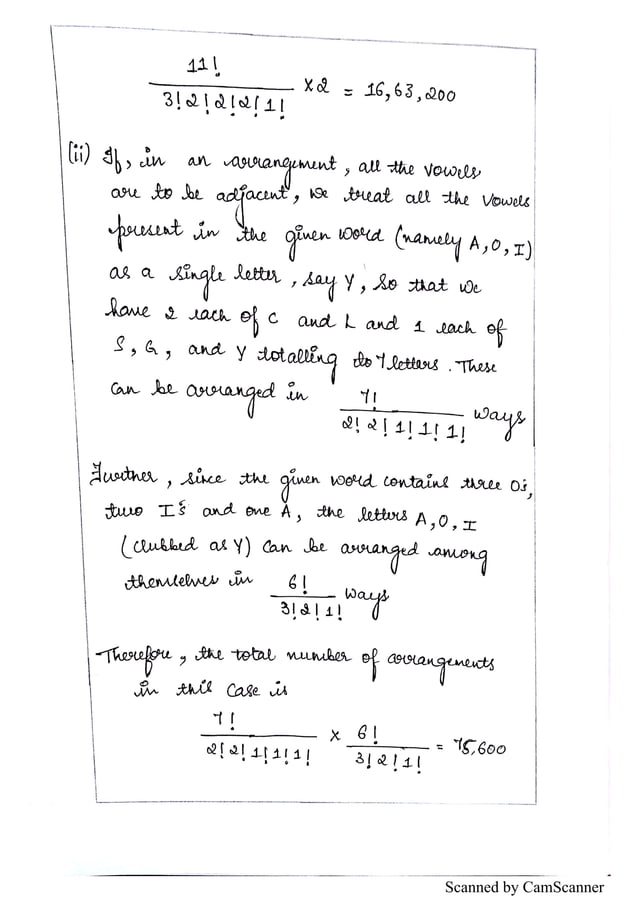 11!
3! 2! 2! 2! 1! × 2 = 16,63,200
(ii) If, in an arrangement, all the vowels
are to be adjacent, we treat all the vowels
present in the given word (namely A, O, I)
as a single letter, say Y, so that we
have 2 each of C and L and 1 each of
S, G, and Y totalling to 7 letters. These
can be arranged in 7! / 2! 2! 1! 1! 1! ways
Further, since the given word contains three O's,
two I's and one A, the letters A, O, I
(clubbed as Y) can be arranged among
themselves in 6! / 3! 2! 1! ways
Therefore, the total number of arrangements
in this case is
7! / 2! 2! 1! 1! 1! × 6! / 3! 2! 1! = 75,600
Scanned by CamScanner